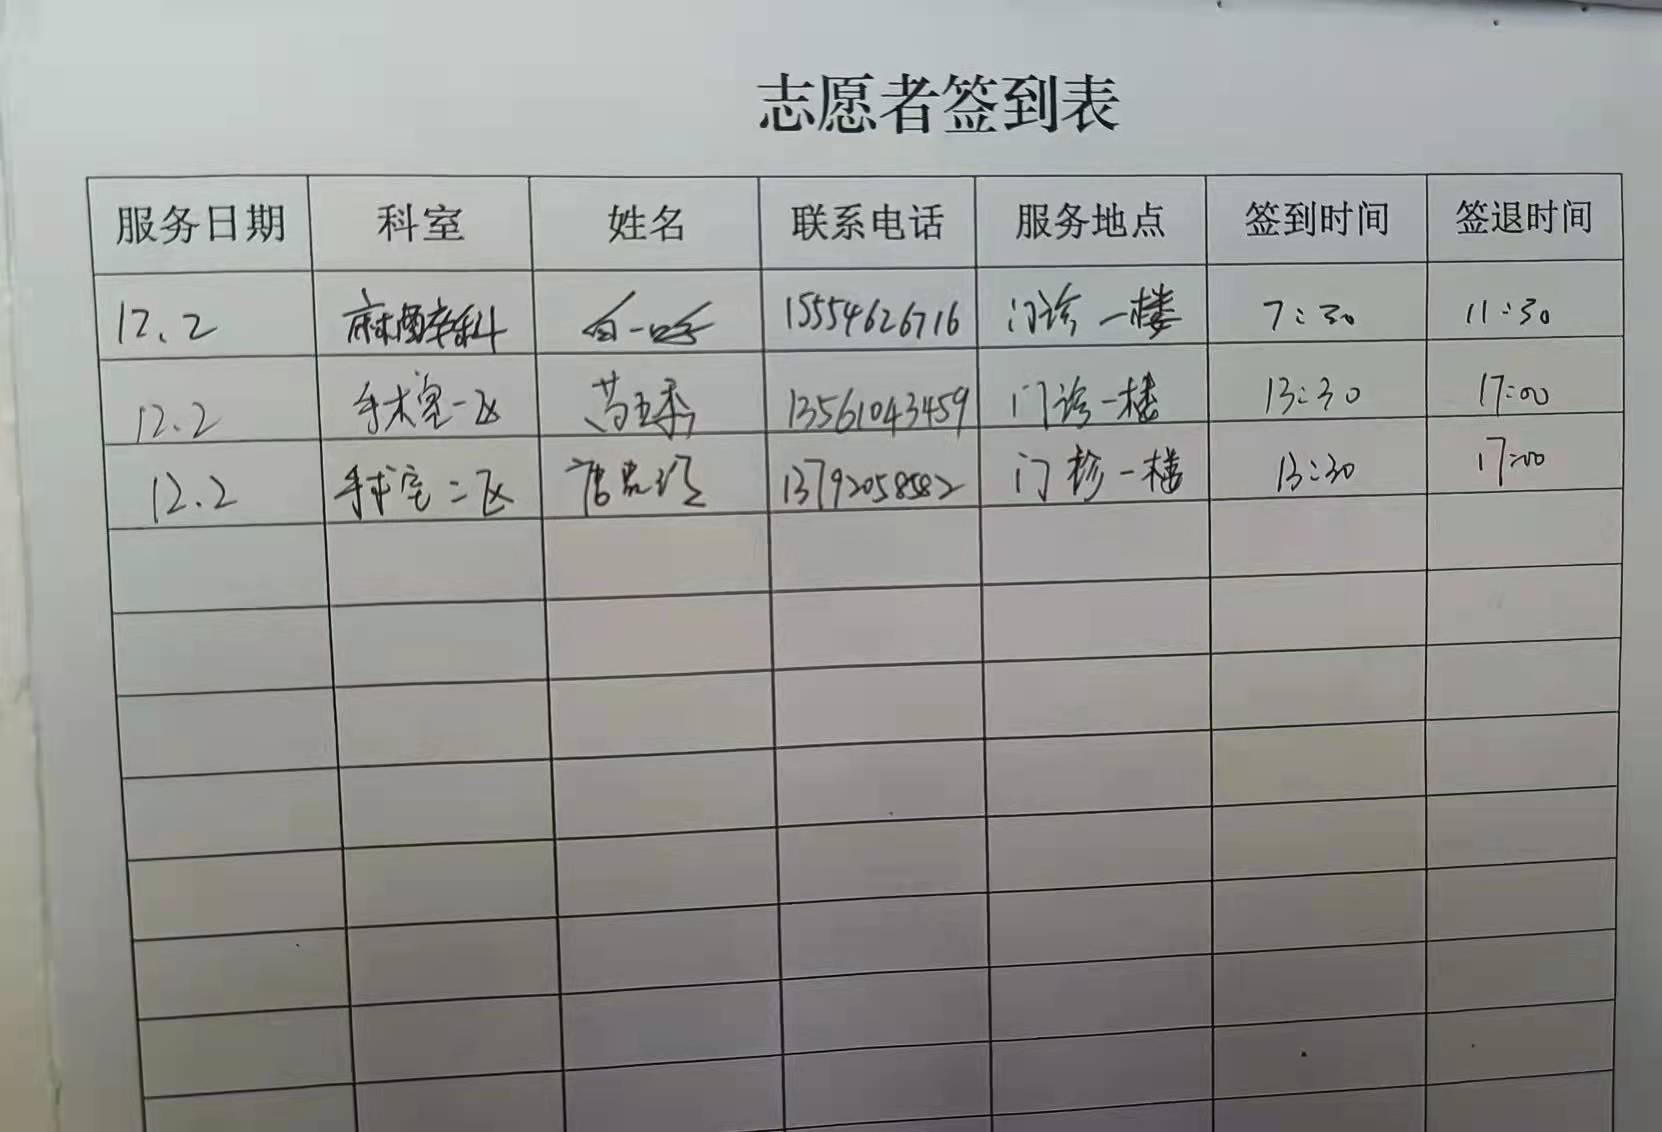 志愿者签到表
服务日期 科室 姓名 联系电话 服务地点 签到时间 签退时间
12.2 麻醉科 15554626716 门诊一楼 7:30 11:30
12.2 手术室一区 13561043459 门诊一楼 13:30 17:00
12.2 手术室二区 13792058582 门诊一楼 13:30 17:00